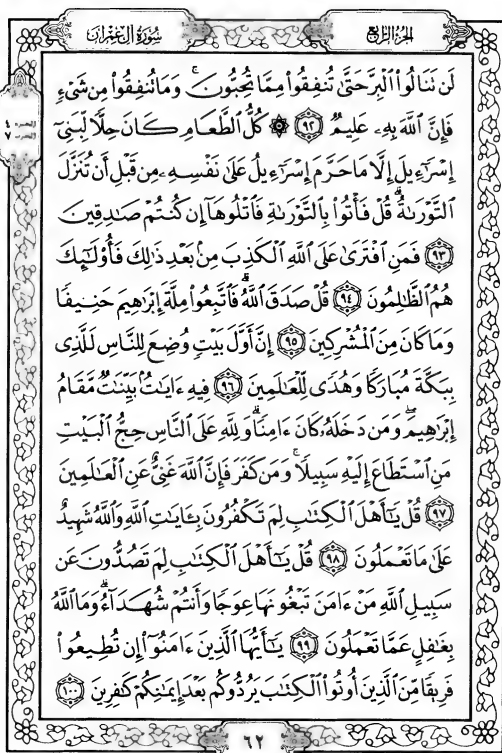 الجزء الرابع
سورة آل عمران
لَن نَنَالُوا۟ ٱلْبِرَّ حَتَّىٰ تُنفِقُوا۟ مِمَّا تُحِبُّونَ ۚ وَمَا تُنفِقُوا۟ مِن شَىْءٍ
فَإِنَّ ٱللَّهَ بِهِۦ عَلِيمٌ ﴿٩٢﴾ ۞ كُلُّ ٱلطَّعَامِ كَانَ حِلًّا لِّبَنِىٓ
إِسْرَٰٓءِيلَ إِلَّا مَا حَرَّمَ إِسْرَٰٓءِيلُ عَلَىٰ نَفْسِهِۦ مِن قَبْلِ أَن تُنَزَّلَ
ٱلتَّوْرَىٰةُ ۗ قُلْ فَأْتُوا۟ بِٱلتَّوْرَىٰةِ فَٱتْلُوهَآ إِن كُنتُمْ صَٰدِقِينَ
﴿٩٣﴾ فَمَنِ ٱفْتَرَىٰ عَلَى ٱللَّهِ ٱلْكَذِبَ مِنۢ بَعْدِ ذَٰلِكَ فَأُو۟لَٰٓئِكَ
هُمُ ٱلظَّٰلِمُونَ ﴿٩٤﴾ قُلْ صَدَقَ ٱللَّهُ ۗ فَٱتَّبِعُوا۟ مِلَّةَ إِبْرَٰهِيمَ حَنِيفًا
وَمَا كَانَ مِنَ ٱلْمُشْرِكِينَ ﴿٩٥﴾ إِنَّ أَوَّلَ بَيْتٍ وُضِعَ لِلنَّاسِ لَلَّذِى
بِبَكَّةَ مُبَارَكًا وَهُدًى لِّلْعَٰلَمِينَ ﴿٩٦﴾ فِيهِ ءَايَٰتٌۢ بَيِّنَٰتٌ مَّقَامُ
إِبْرَٰهِيمَ ۖ وَمَن دَخَلَهُۥ كَانَ ءَامِنًا ۗ وَلِلَّهِ عَلَى ٱلنَّاسِ حِجُّ ٱلْبَيْتِ
مَنِ ٱسْتَطَاعَ إِلَيْهِ سَبِيلًا ۚ وَمَن كَفَرَ فَإِنَّ ٱللَّهَ غَنِىٌّ عَنِ ٱلْعَٰلَمِينَ
﴿٩٧﴾ قُلْ يَٰٓأَهْلَ ٱلْكِتَٰبِ لِمَ تَكْفُرُونَ بِـَٔايَٰتِ ٱللَّهِ وَٱللَّهُ شَهِيدٌ
عَلَىٰ مَا تَعْمَلُونَ ﴿٩٨﴾ قُلْ يَٰٓأَهْلَ ٱلْكِتَٰبِ لِمَ تَصُدُّونَ عَن
سَبِيلِ ٱللَّهِ مَنْ ءَامَنَ تَبْغُونَهَا عِوَجًا وَأَنتُمْ شُهَدَآءُ ۗ وَمَا ٱللَّهُ
بِغَٰفِلٍ عَمَّا تَعْمَلُونَ ﴿٩٩﴾ يَٰٓأَيُّهَا ٱلَّذِينَ ءَامَنُوٓا۟ إِن تُطِيعُوا۟
فَرِيقًا مِّنَ ٱلَّذِينَ أُوتُوا۟ ٱلْكِتَٰبَ يَرُدُّوكُم بَعْدَ إِيمَٰنِكُمْ كَٰفِرِينَ ﴿١٠٠﴾
٦٢